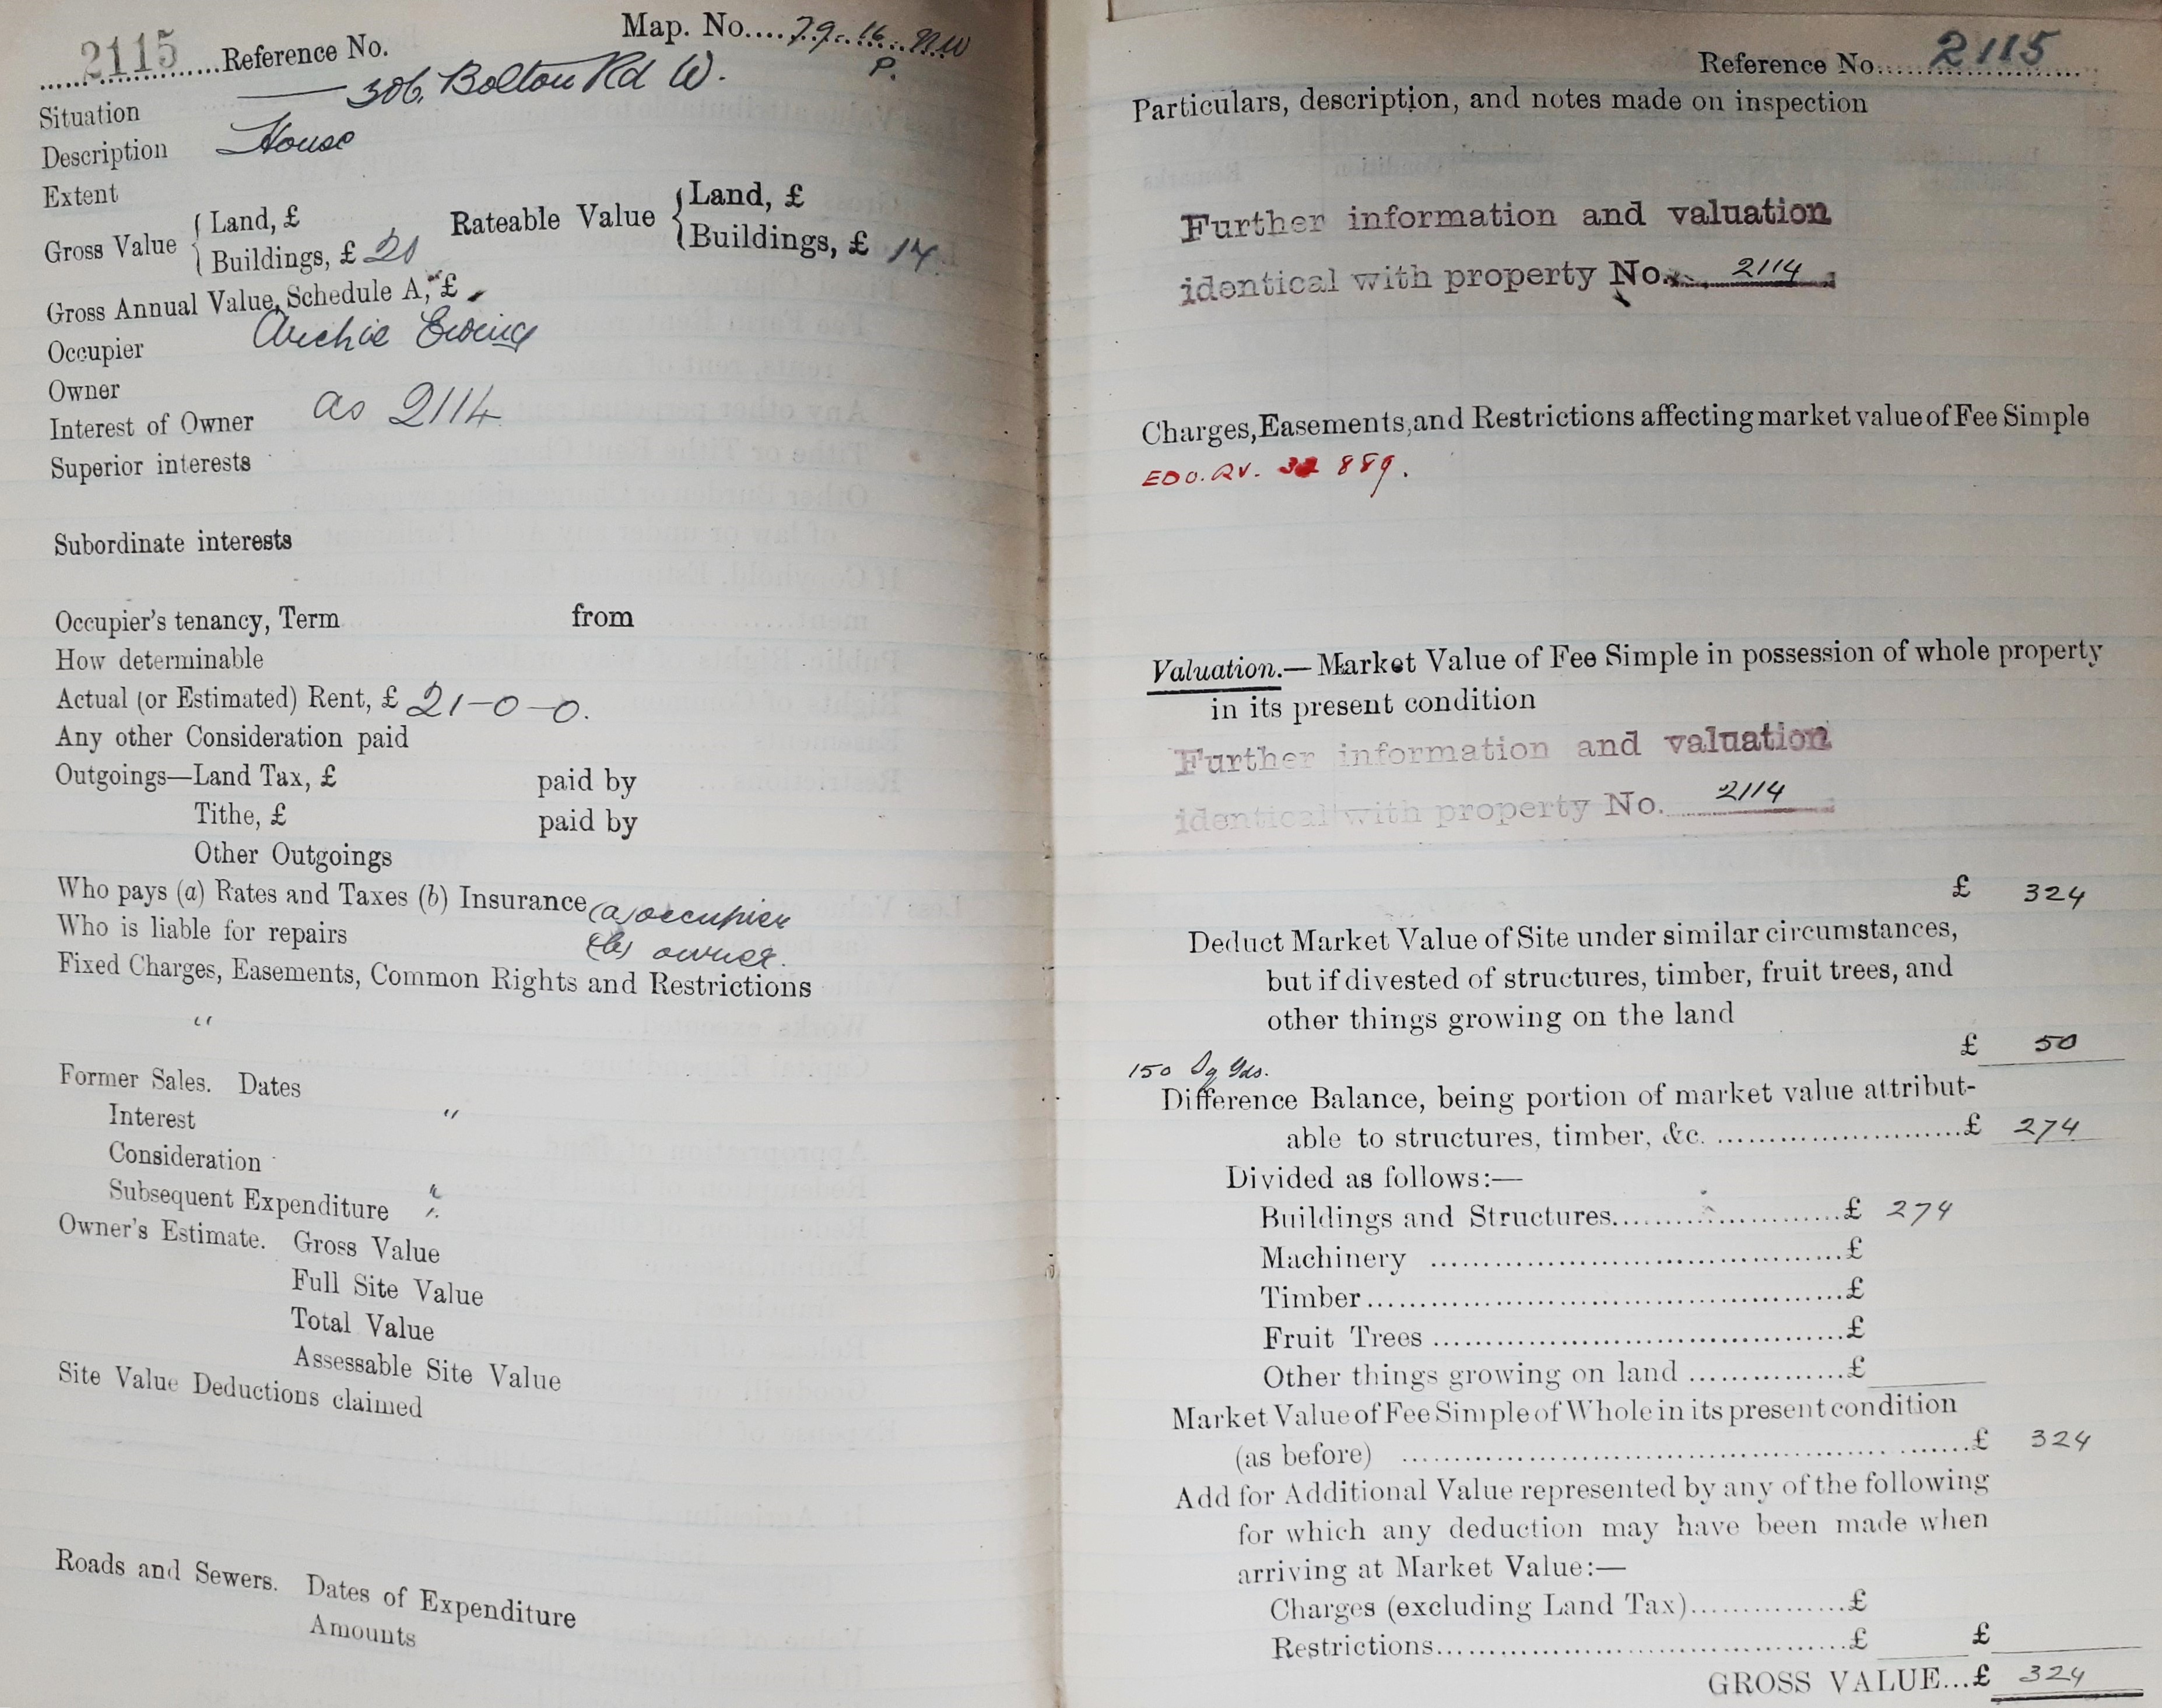 2115 Reference No. Map. No. 79.16 NW
P.
Situation 306, Bolton Rd W.
Description House
Extent
Gross Value { Land, £ Rateable Value { Land, £
Buildings, £ Buildings, £ 14
Gross Annual Value, Schedule A, £
Occupier Archie Ewing
Owner
Interest of Owner as 2114
Superior interests
Subordinate interests
Occupier's tenancy, Term from
How determinable
Actual (or Estimated) Rent, £ 21-0-0.
Any other Consideration paid
Outgoings—Land Tax, £ paid by
Tithe, £ paid by
Other Outgoings
Who pays (a) Rates and Taxes (b) Insurance (a) occupier
Who is liable for repairs (b) owner.
Fixed Charges, Easements, Common Rights and Restrictions
"
Former Sales. Dates
Interest "
Consideration
Subsequent Expenditure "
Owner's Estimate. Gross Value
Full Site Value
Total Value
Assessable Site Value
Site Value Deductions claimed
Roads and Sewers. Dates of Expenditure
Amounts
Reference No. 2115
Particulars, description, and notes made on inspection
Further information and valuation
identical with property No. 2114
Charges, Easements, and Restrictions affecting market value of Fee Simple
889.
Valuation.—Market Value of Fee Simple in possession of whole property
in its present condition
Further information and valuation
identical with property No. 2114
£ 324
Deduct Market Value of Site under similar circumstances,
but if divested of structures, timber, fruit trees, and
other things growing on the land
£ 50
150 Sq Yds.
Difference Balance, being portion of market value attribut-
able to structures, timber, &c. £ 274
Divided as follows:—
Buildings and Structures £ 274
Machinery £
Timber £
Fruit Trees £
Other things growing on land £
Market Value of Fee Simple of Whole in its present condition
(as before) £ 324
Add for Additional Value represented by any of the following
for which any deduction may have been made when
arriving at Market Value:—
Charges (excluding Land Tax) £
Restrictions £ £
GROSS VALUE...£ 324